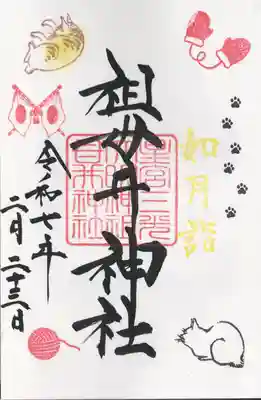 如月詣
祖母井神社
令和七年
二月二十三日